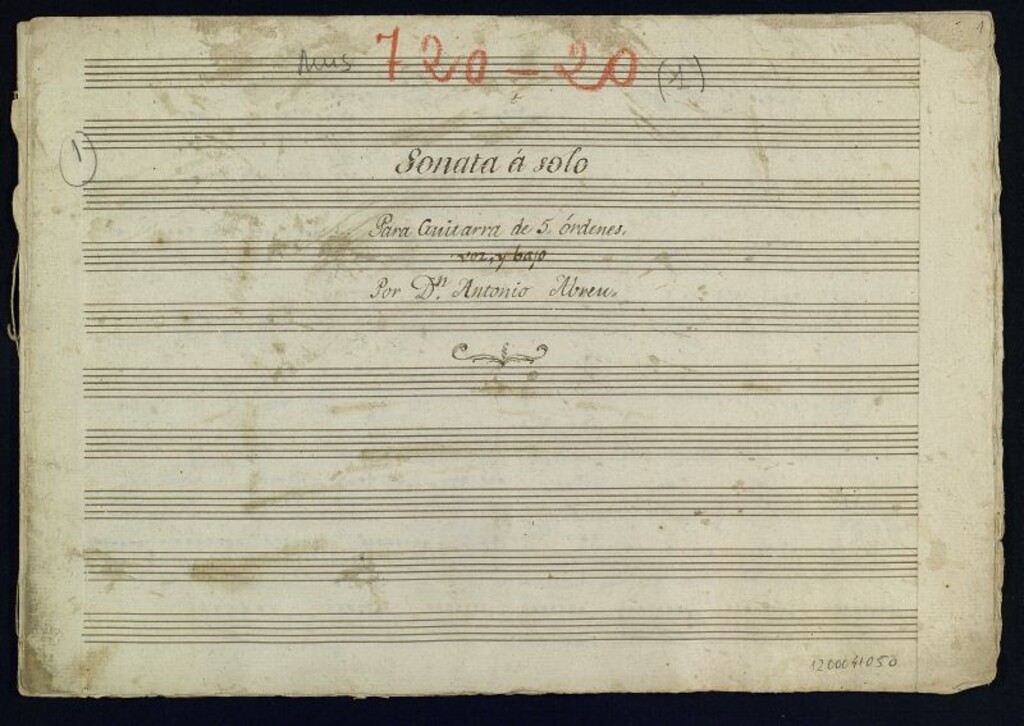 1
Mus 720-20 (1)
1)
Sonata á solo
Para Guitarra de 5. órdenes.
voz, y bajo
Por Dⁿ. Antonio Abreu.
1200041050